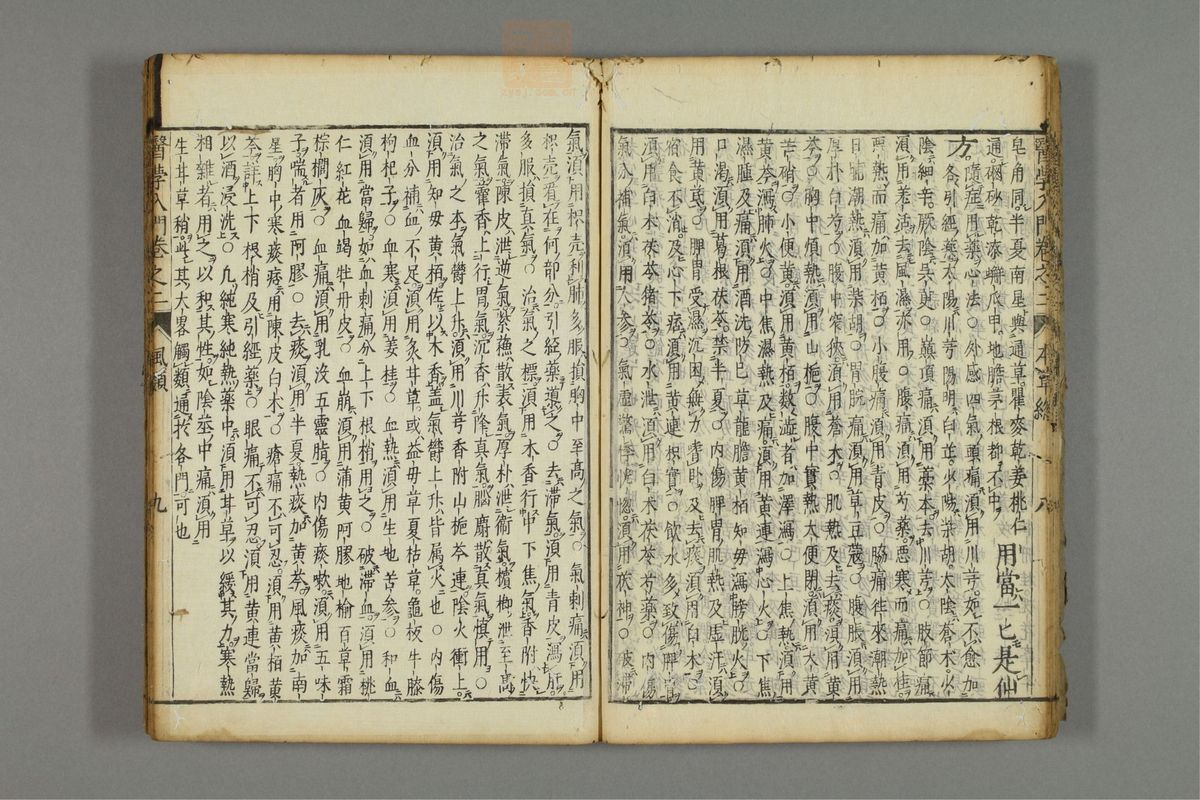 醫學入門卷之二 本草總 八
皂角同半夏南星與通草瞿麥乾姜桃仁 用當一匕是仙
通硇砂乾漆蠏爪甲地膽茅根都不中
方 隱庭用藥心法○外感四氣頭痛須用川芎如不愈加
各引經藥太陽川芎陽明白芷少陽柴胡太陰蒼木少
陰細辛厥陰吳萸○巔頂痛須用藁本去川芎○肢節痛
須用羌活去風濕亦用○腹痛須用芍藥惡寒而痛加桂
惡熱而痛加黃栢○小腹痛須用青皮○脇痛徃來潮熱
日晡潮熱須用柴胡○胃脘痛須用草豆蔻○腹脹須用
厚朴白芍○腹中窄狹須用蒼木○肌熱及去痰須用黃
芩○胸中煩熱須用山梔○腹中實熱大便閉須用大黃
芒硝○小便黃須用黃栢數澁者加澤瀉○上焦熱須用
黃芩瀉肺火○中焦濕熱及痛須用黃連瀉心火○下焦
濕腫及痛須用酒洗防巳草龍膽黃栢知毋瀉膀胱火○
口渴須用葛根茯苓禁半夏○內傷脾胃肌熱及虛汗須
用黃茋○脾胃受濕沉困無力嗜卧及去痰須用白木○
宿食不消及心下痞須用黃連枳實○飲水多致傷脾胃
須用白木茯苓猪苓○水泄須用白木茯苓芍藥○內傷
氣分補氣須用人參○氣虛驚悸恍惚須用茯神○破滯
氣須用枳壳利肺多服損胸中至高之氣○氣刺痛須用
枳壳看在何部分引経藥導之○去滯氣須用青皮瀉肝
多服損真氣○治氣之標須用木香行中下焦氣香附快
滯氣陳皮泄逆氣紫蘓散表氣厚朴泄衛氣檳榔泄至高
之氣藿香上行胃氣沉香升降真氣腦麝散真氣慎用○
治氣之本氣欝上升須用川芎香附山梔芩連陰火衝上
須用知毋黃栢佐以木香盖氣欝上升皆属火也○內傷
血分補血不足須用炙甘草或益毋草夏枯草龜板牛膝
枸杞子○血寒須用姜桂○血熱須用生地苦參○和血
須用當歸如血刺痛分上下根梢用之○破滯血須用桃
仁紅花血竭牡丹皮○血崩須用蒲黃阿膠地榆百草霜
棕櫚灰○血痛須用乳没五靈脂○內傷痰嗽須用五味
子喘者用阿膠○去痰須用半夏熱痰加黃芩風痰加南
星胸中寒痰痞用陳皮白木○瘡痛不可忍須用黃栢黃
芩詳上下根梢及引經藥○眼痛不可忍須用黃連當歸
以酒浸洗○凢純寒純熱藥中須用甘草以緩其力寒熱
相雜者用之以和其性如陰莖中痛須用
生甘草稍此其大畧觸類通於各門可也
醫學入門卷之二 風類 九